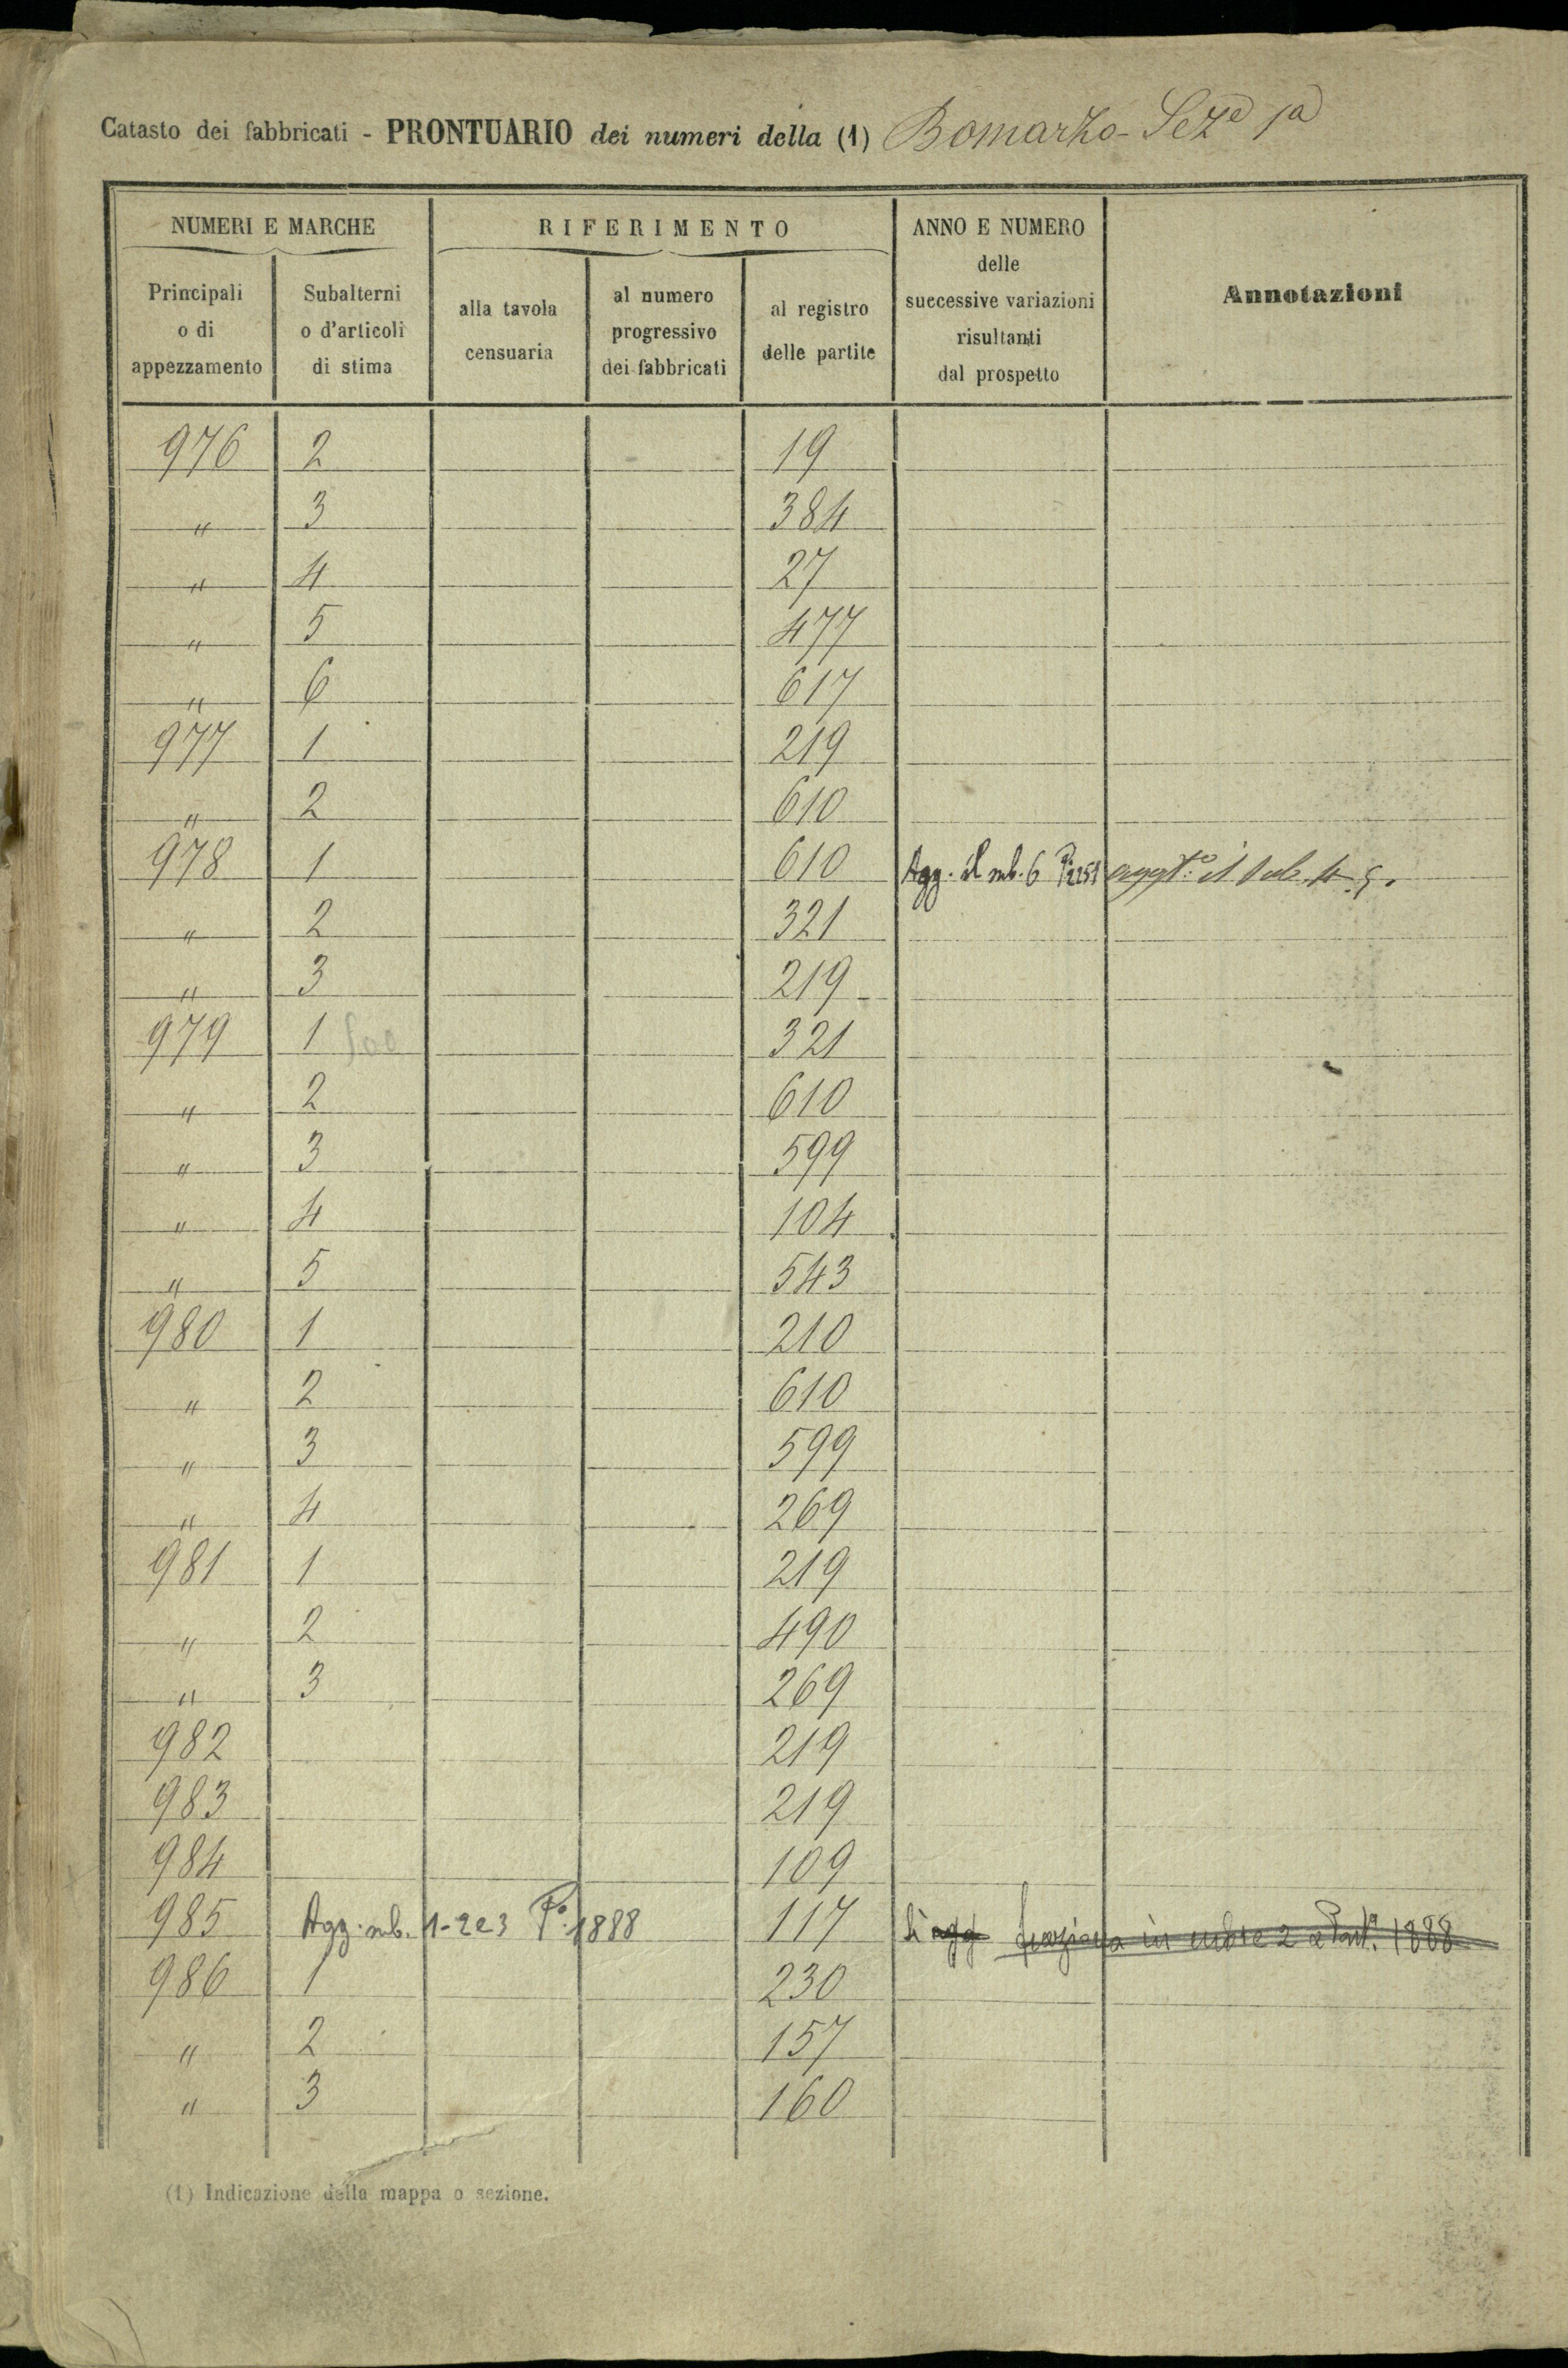 Catasto dei fabbricati - PRONTUARIO dei numeri della (1) Bomarzo - Sez.e 1a
NUMERI E MARCHE
RIFERIMENTO
ANNO E NUMERO
delle
successive variazioni
risultanti
dal prospetto
Annotazioni
Principali
o di
appezzamento
Subalterni
o d'articoli
di stima
alla tavola
censuaria
al numero
progressivo
dei fabbricati
al registro
delle partite
976 2 19
" 3 384
" 4 27
" 5 477
" 6 617
977 1 219
" 2 610
978 1 610 Agg. il sub. 6 aggto il sub. 4. 5.
" 2 321
" 3 219
979 1 321
" 2 610
" 3 599
" 4 104
" 5 543
980 1 210
" 2 610
" 3 599
" 4 269
981 1 219
" 2 490
" 3 269
982 219
983 219
984 109
985 Agg. sub. 1-2 e 3 Po. 1888 117 Si agg in 2 a Part. 1888
986 1 230
" 2 157
" 3 160
(1) Indicazione della mappa o sezione.